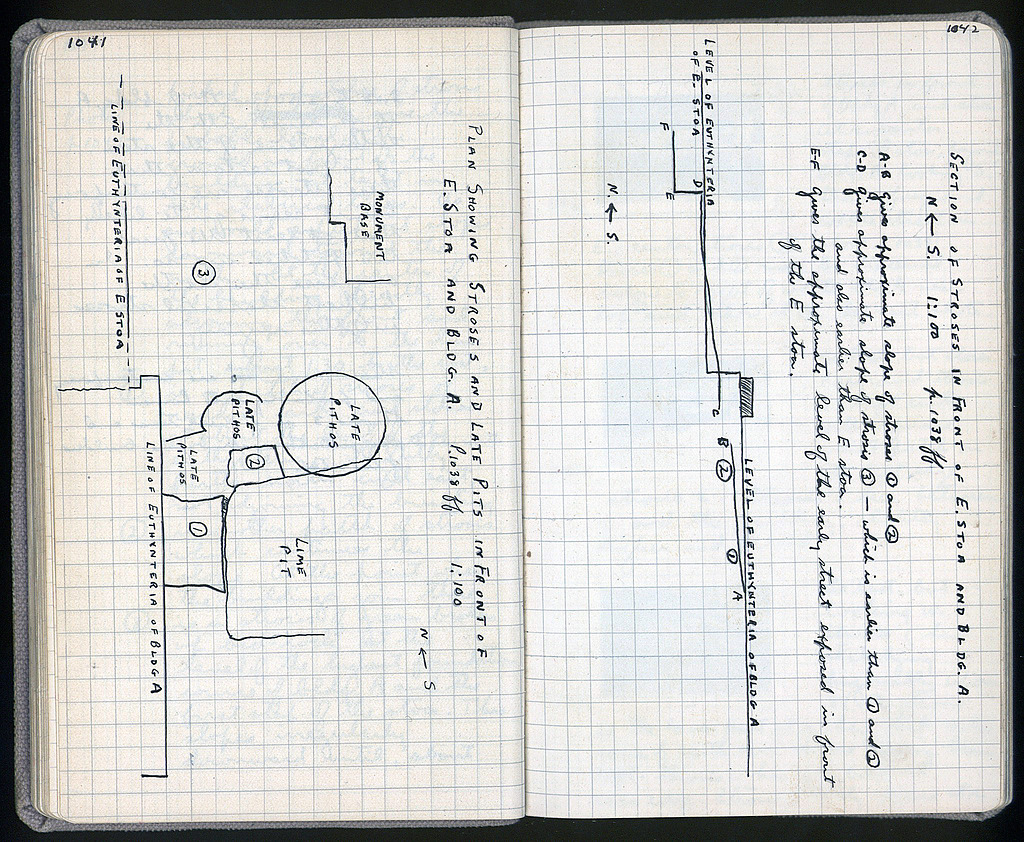 1041
PLAN SHOWING STROSES AND LATE PITS IN FRONT OF
E STOA AND BLDG. A. P.1038 ff 1:100
N ← S
MONUMENT
BASE
LIME
PIT
LATE
PITHOS
LATE
PITHOS
②
③
LATE
PITHOS
①
LINE OF EUTHYNTERIA OF BLDG A
LINE OF EUTHYNTERIA OF E STOA
1042
SECTION OF STROSES IN FRONT OF E. STOA AND BLDG. A.
N ← S. 1:100 p. 1038 ff
A-B gives approximate slope of stroses ① and ②
C-D gives approximate slope of strosis ③ — which is earlier than ① and ②
and also earlier than E stoa.
E-F gives the approximate level of the early street exposed in front
of the E stoa.
LEVEL OF EUTHYNTERIA OF BLDG A
LEVEL OF EUTHYNTERIA
OF E. STOA
A
①
②
B
C
D
E
F
N. ← S.